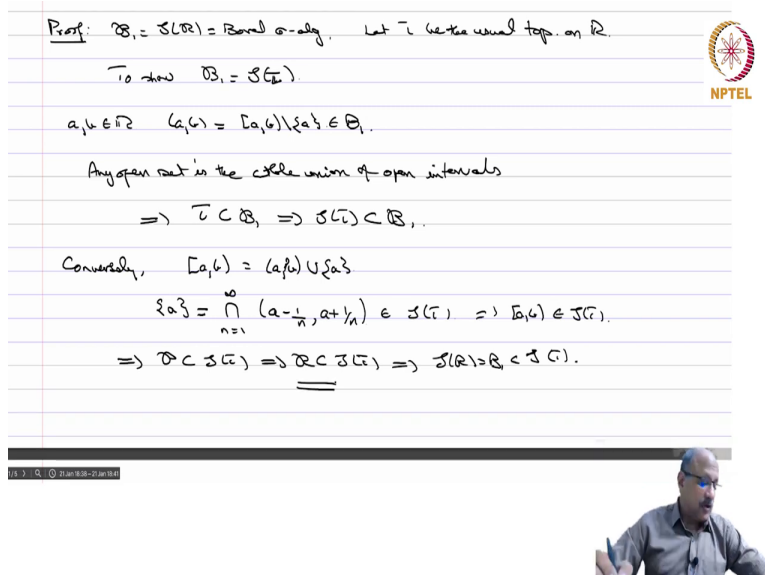 Proof: 𝓑₁ = 𝒮(𝓡) = Borel σ-alg. Let τ be the usual top. on ℝ.
To show 𝓑₁ = 𝒮(τ).
a,b ∈ ℝ (a,b) = [a,b)\{a} ∈ 𝓑₁.
Any open set is the ctble union of open intervals
⇒ τ ⊂ 𝓑₁ ⇒ 𝒮(τ) ⊂ 𝓑₁.
Conversely, [a,b) = (a,b) ∪ {a}
{a} = ∩_{n=1}^{∞} (a-1/n, a+1/n) ∈ 𝒮(τ) ⇒ [a,b) ∈ 𝒮(τ).
⇒ 𝒫 ⊂ 𝒮(τ) ⇒ 𝓡 ⊂ 𝒮(τ) ⇒ 𝒮(𝓡) = 𝓑₁ ⊂ 𝒮(τ).
NPTEL
1/5 21 Jan 18:38 – 21 Jan 18:41